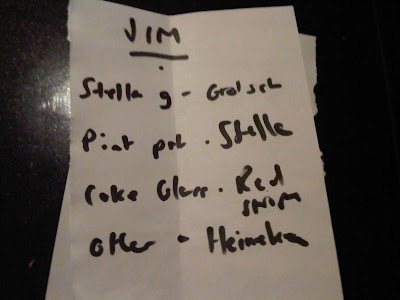 JIM
Stella g - Grolsch
Pint pot . Stella
Coke Glass . Red
other - Heineken